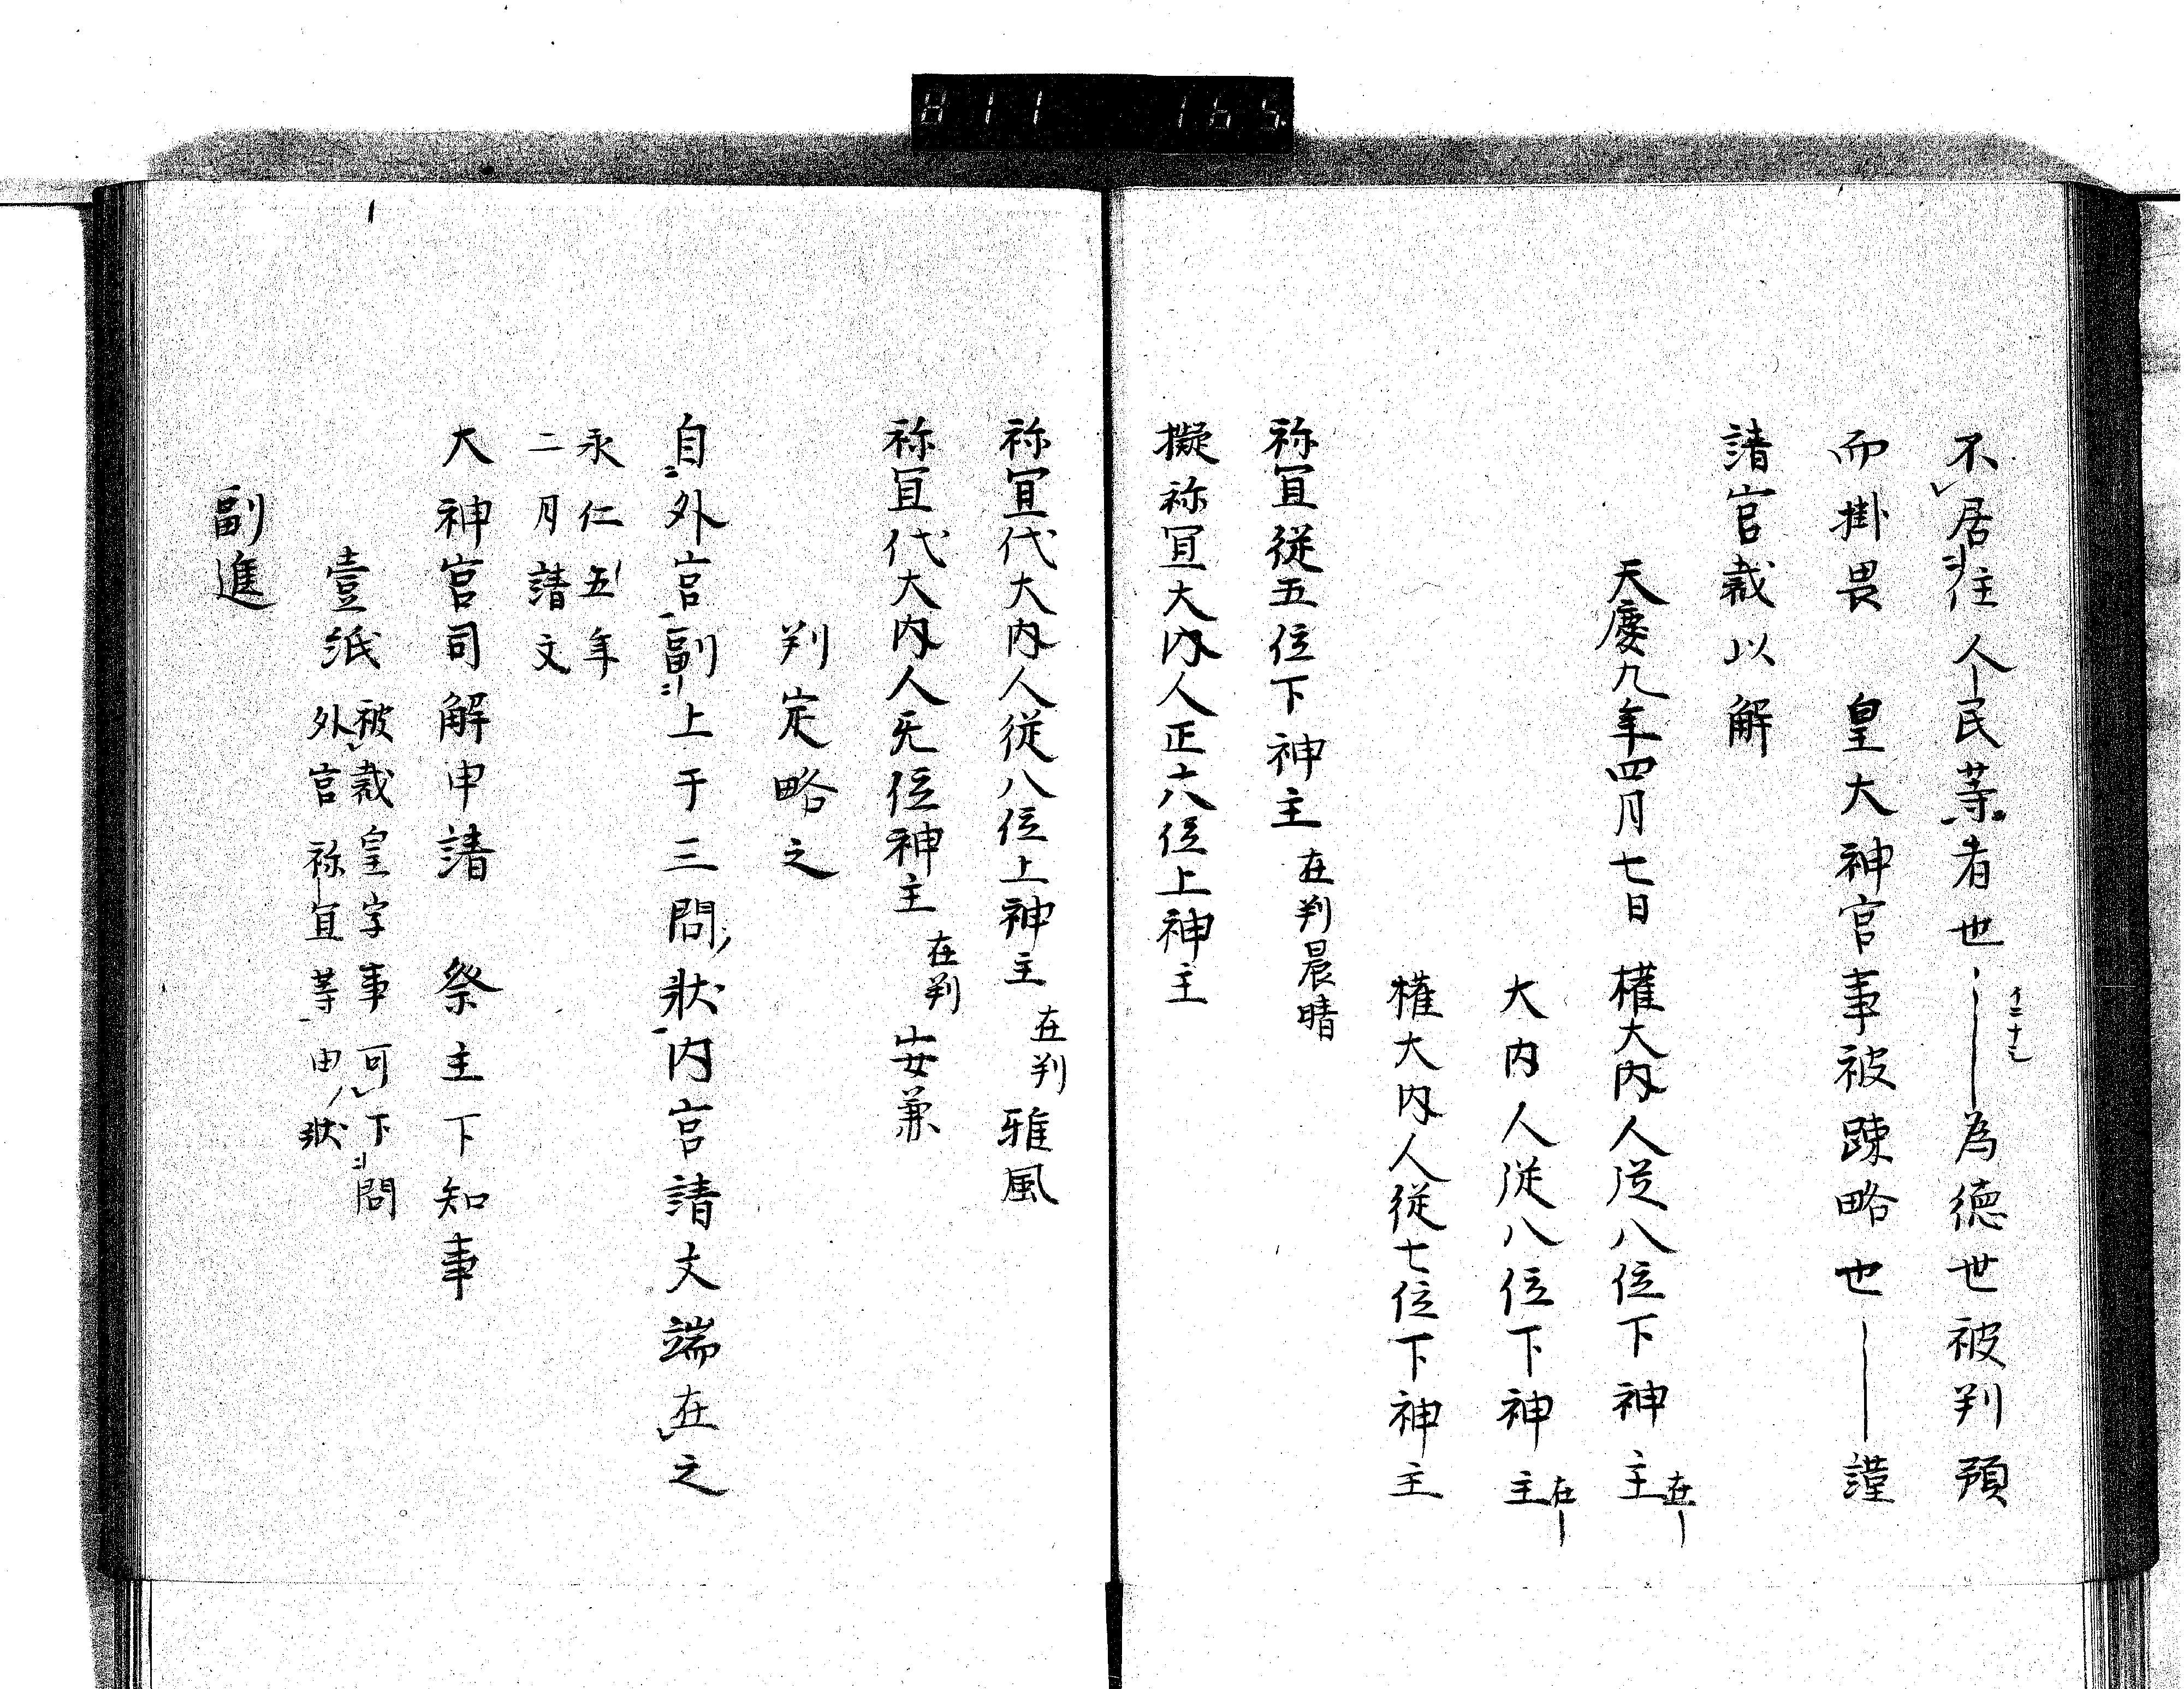 811 165
不居住人民等者也――為徳世被判預
而掛畏 皇大神宮事被踈略也――謹
請官裁以解
天慶九年四月七日 權大内人従八位下神主在―
大内人従八位下神主在―
權大内人従七位下神主
祢冝従五位下神主在判晨晴
擬祢冝大内人正六位上神主
祢冝代大内人従八位上神主在判雅風
祢冝代大内人无位神主在判安兼
判定略之
自外宮副上于三問状内宮請文端在之
永仁五年
二月請文
大神宮司解申請 祭主下知事
壹紙被裁皇字事可下問
外宮祢冝等由状
副進